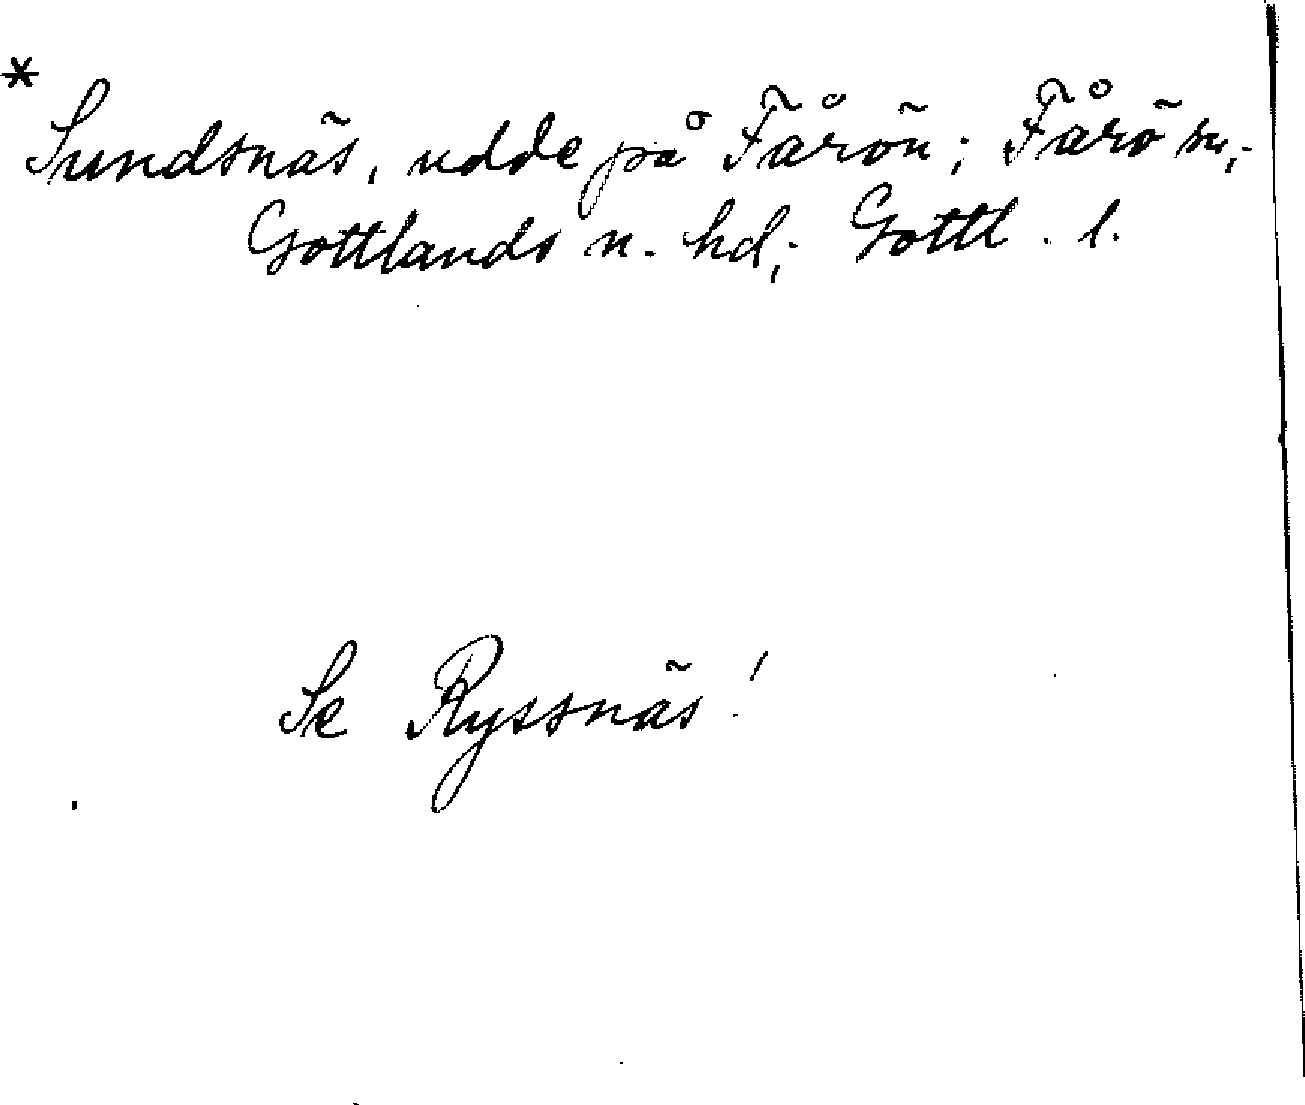 * Sundsnäs, udde på Fårön; Fårö sn;
Gottlands n. hd; Gottl. l.
Se Ryssnäs!